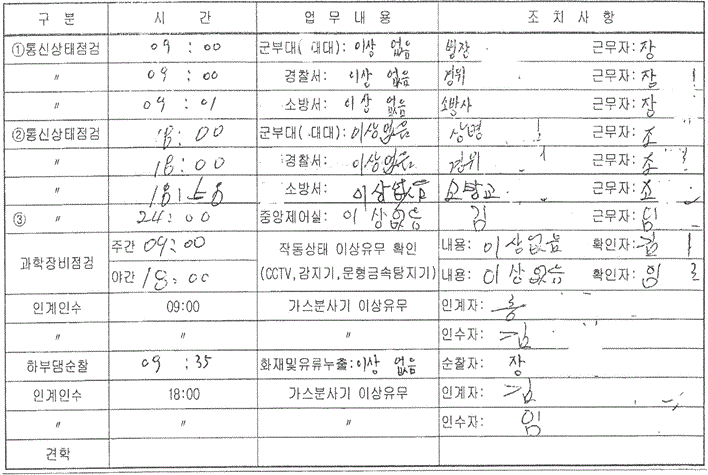 구 분 시 간 업 무 내 용 조 치 사 항
①통신상태점검 09 : 00 군부대( 대대): 이상 없음 병장 근무자: 장
〃 09 : 00 경찰서: 이상 없음 경위 근무자: 장
〃 09 : 01 소방서: 이상 없음 소방사 근무자: 장
②통신상태점검 18 : 00 군부대( 대대): 이상없음 상병 근무자: 조
〃 18 : 00 경찰서: 이상없음 경위 근무자: 조
〃 소방서: 이상없음 소방교 근무자: 조
③ 〃 24 : 00 중앙제어실: 이상없음 김 근무자: 임
과학장비점검 주간 09 : 00 작동상태 이상유무 확인 내용: 이상없음 확인자: 김
야간 18 : 00 (CCTV,감지기,문형금속탐지기) 내용: 이상없음 확인자: 임
인계인수 09:00 가스분사기 이상유무 인계자: 홍
〃 〃 〃 인수자: 김
하부댐순찰 09 : 35 화재및유류누출: 이상 없음 순찰자: 장
인계인수 18:00 가스분사기 이상유무 인계자: 김
〃 〃 〃 인수자: 임
견학